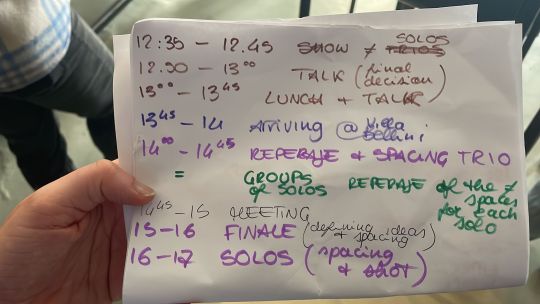 12:35 – 12.45 SHOW ≠ SOLOS
TRIOS
12.50 – 13⁰⁰ TALK (final decision)
13⁰⁰ – 13⁴⁵ LUNCH + TALK
13⁴⁵ – 14 ARRIVING @ Villa Bellini
14⁰⁰ – 14⁴⁵ REPERAJE & SPACING TRIO
= GROUPS of SOLOS REPERAJE of the ≠ spaces for each solo
14⁴⁵ – 15 MEETING
15 – 16 FINALE (defining ideas & spacing)
16 – 17 SOLOS (spacing & shot)